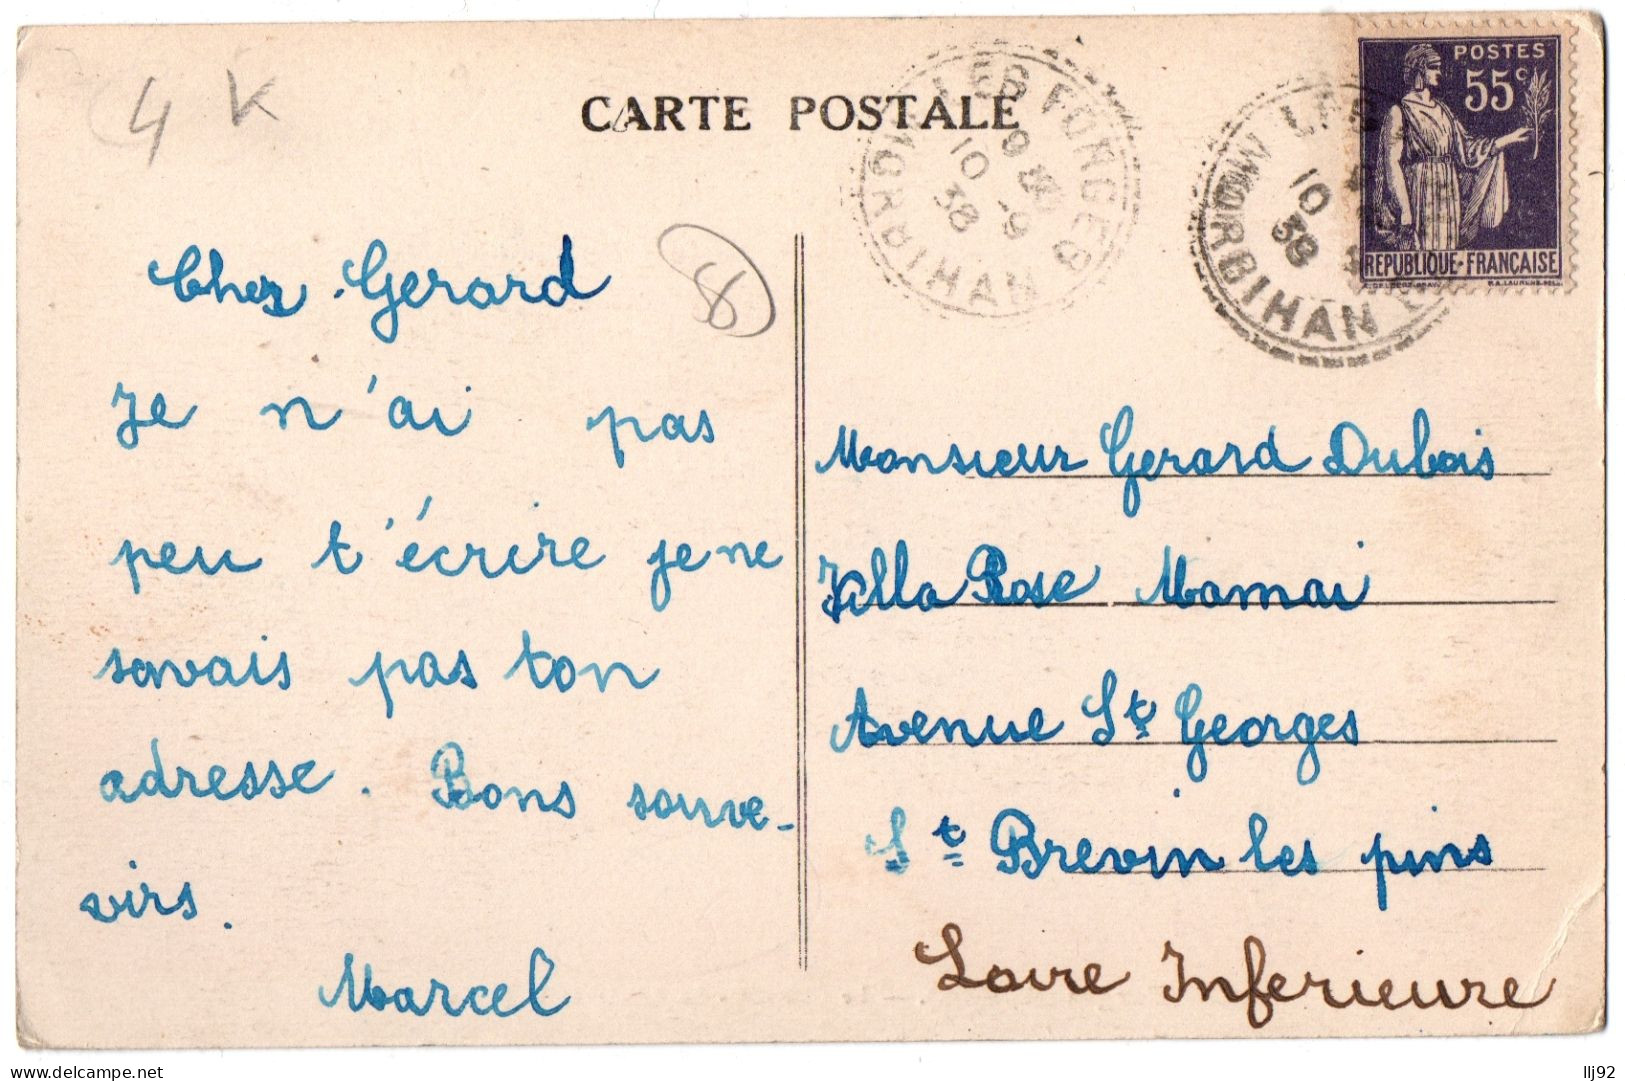 4 K
CARTE POSTALE
LES FORGES
MORBIHAN
9
10 -9
38
POSTES
55c
REPUBLIQUE-FRANÇAISE
LES
MORBIHAN
10
38
8
Cher Gerard
Je n'ai pas
peu t'écrire je ne
savais pas ton
adresse. Bons souve-
virs.
Marcel
Monsieur Gerard Dubois
Villa Rose Mamai
Avenue St Georges
St Brevin les pins
Loire Inferieure
llj92